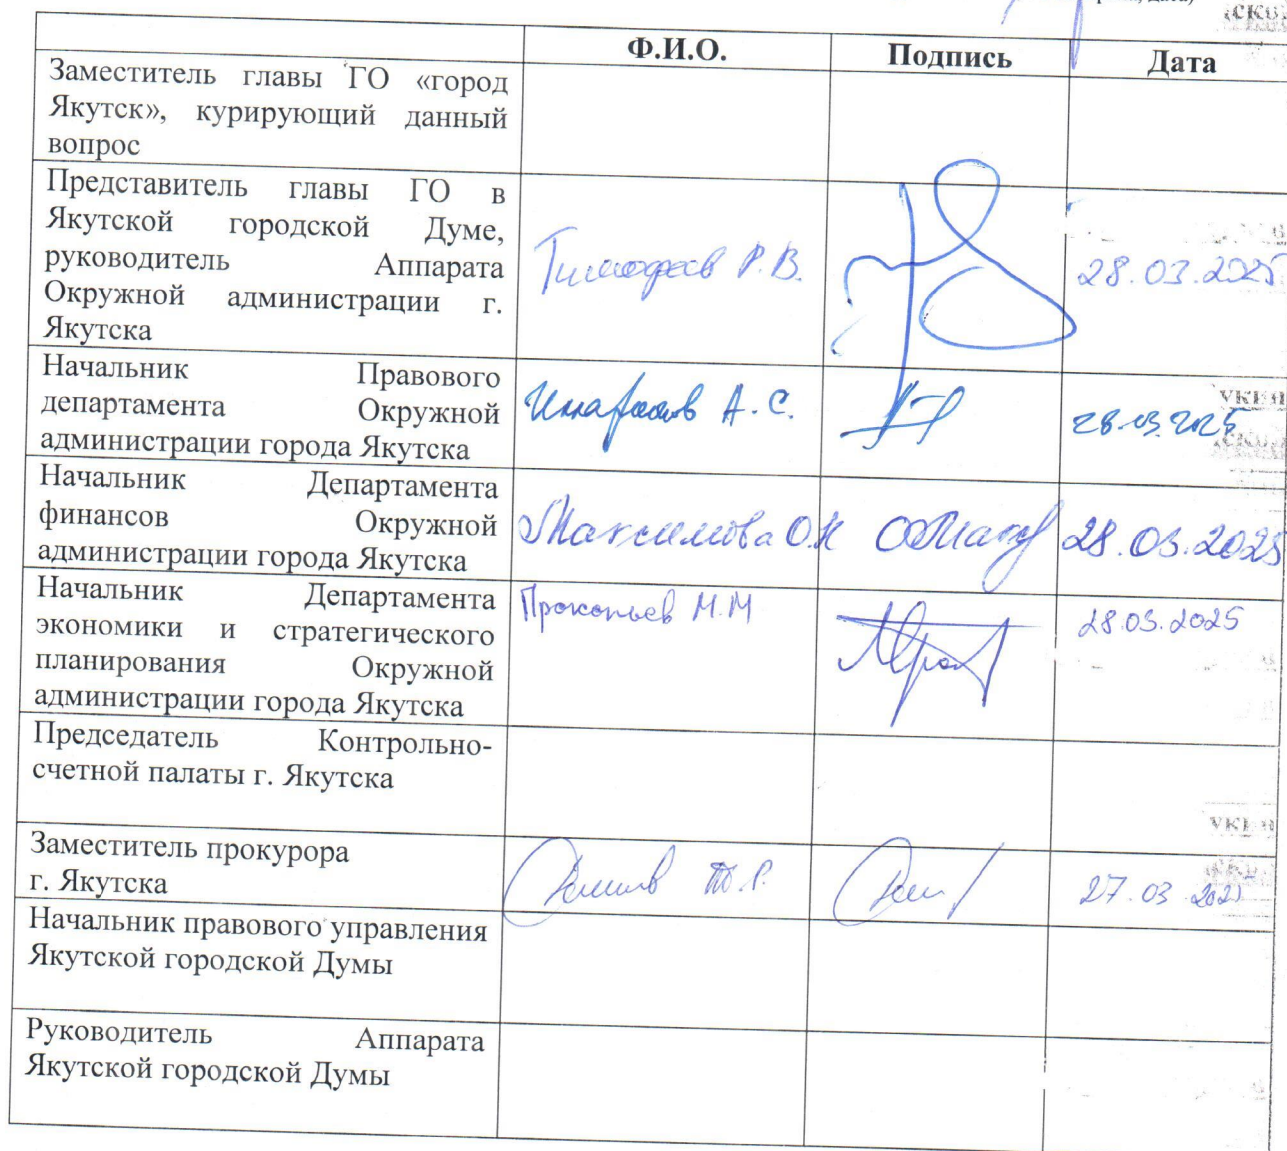 Ф.И.О. Подпись Дата
Заместитель главы ГО «город
Якутск», курирующий данный
вопрос
Представитель главы ГО в
Якутской городской Думе,
руководитель Аппарата
Окружной администрации г.
Якутска
Тимофеев Р.В. 28.03.2025
Начальник Правового
департамента Окружной
администрации города Якутска
А.С. 28.03.2025
Начальник Департамента
финансов Окружной
администрации города Якутска
Максимова О.Н 28.03.2025
Начальник Департамента
экономики и стратегического
планирования Окружной
администрации города Якутска
Прокопьев М.М 28.03.2025
Председатель Контрольно-
счетной палаты г. Якутска
Заместитель прокурора
г. Якутска
27.03.2025
Начальник правового управления
Якутской городской Думы
Руководитель Аппарата
Якутской городской Думы